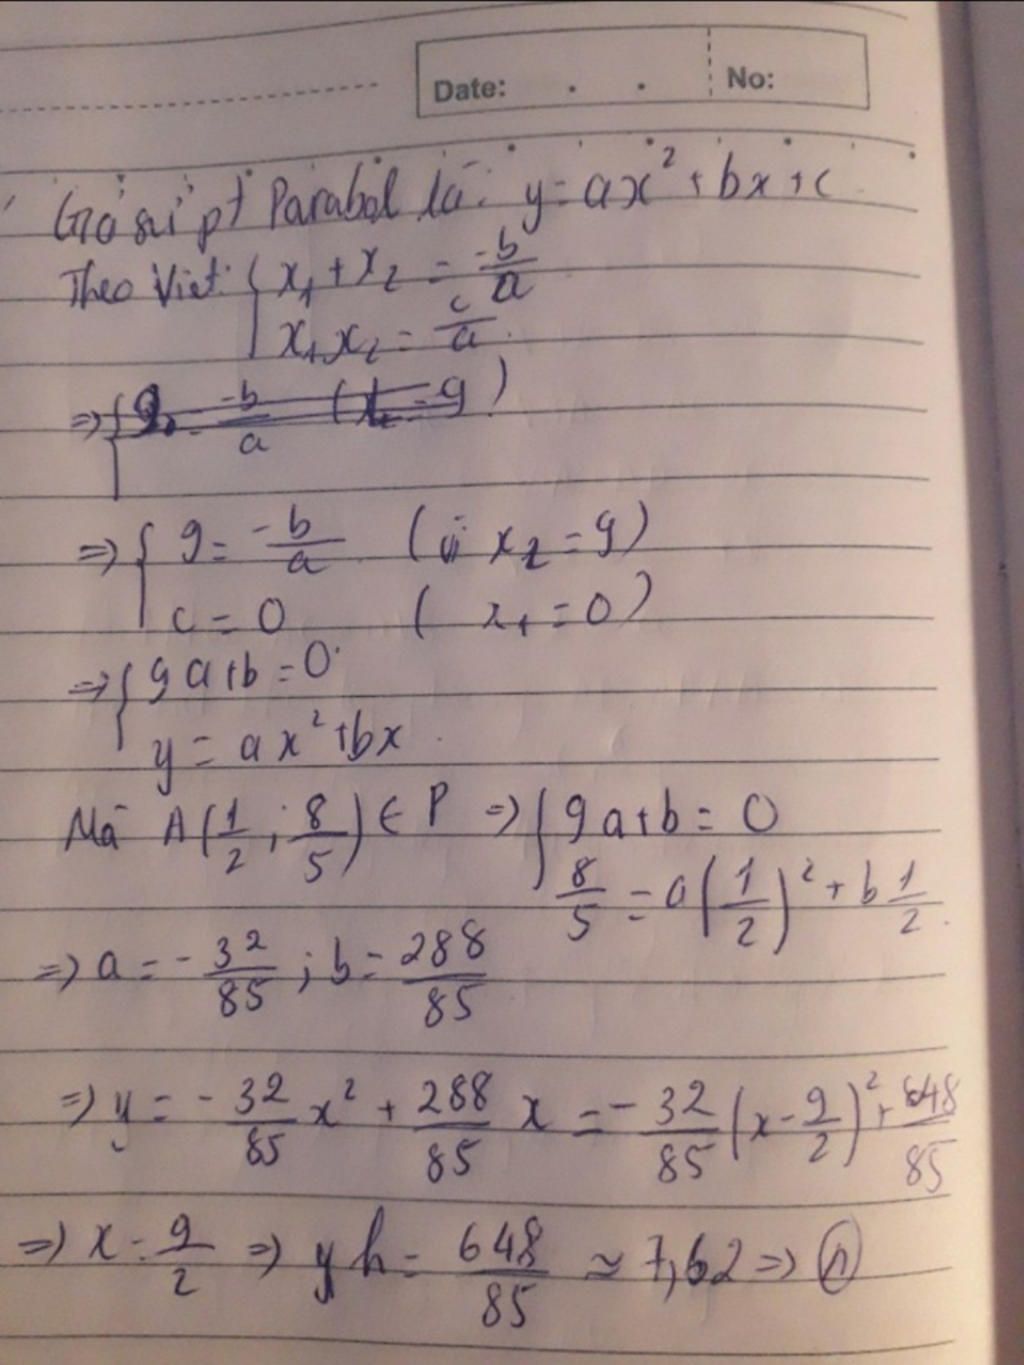 Date: . . No:
Giả sử pt Parabol là: y = ax² + bx + c
Theo Viet: { x₁ + x₂ = -b/a
x₁x₂ = c/a.
=> { 9 = -b/a (x₂ = 9)
=> { 9 = -b/a (vì x₂ = 9)
c = 0 ( x₁ = 0)
=> { 9a + b = 0
y = ax² + bx.
Mà A(1/2; 8/5) ∈ P => { 9a + b = 0
8/5 = a(1/2)² + b 1/2.
=> a = -32/85; b = 288/85
=> y = -32/85 x² + 288/85 x = -32/85 (x - 9/2)² + 648/85
=> x = 9/2 => y h = 648/85 ≈ 7,62 =>